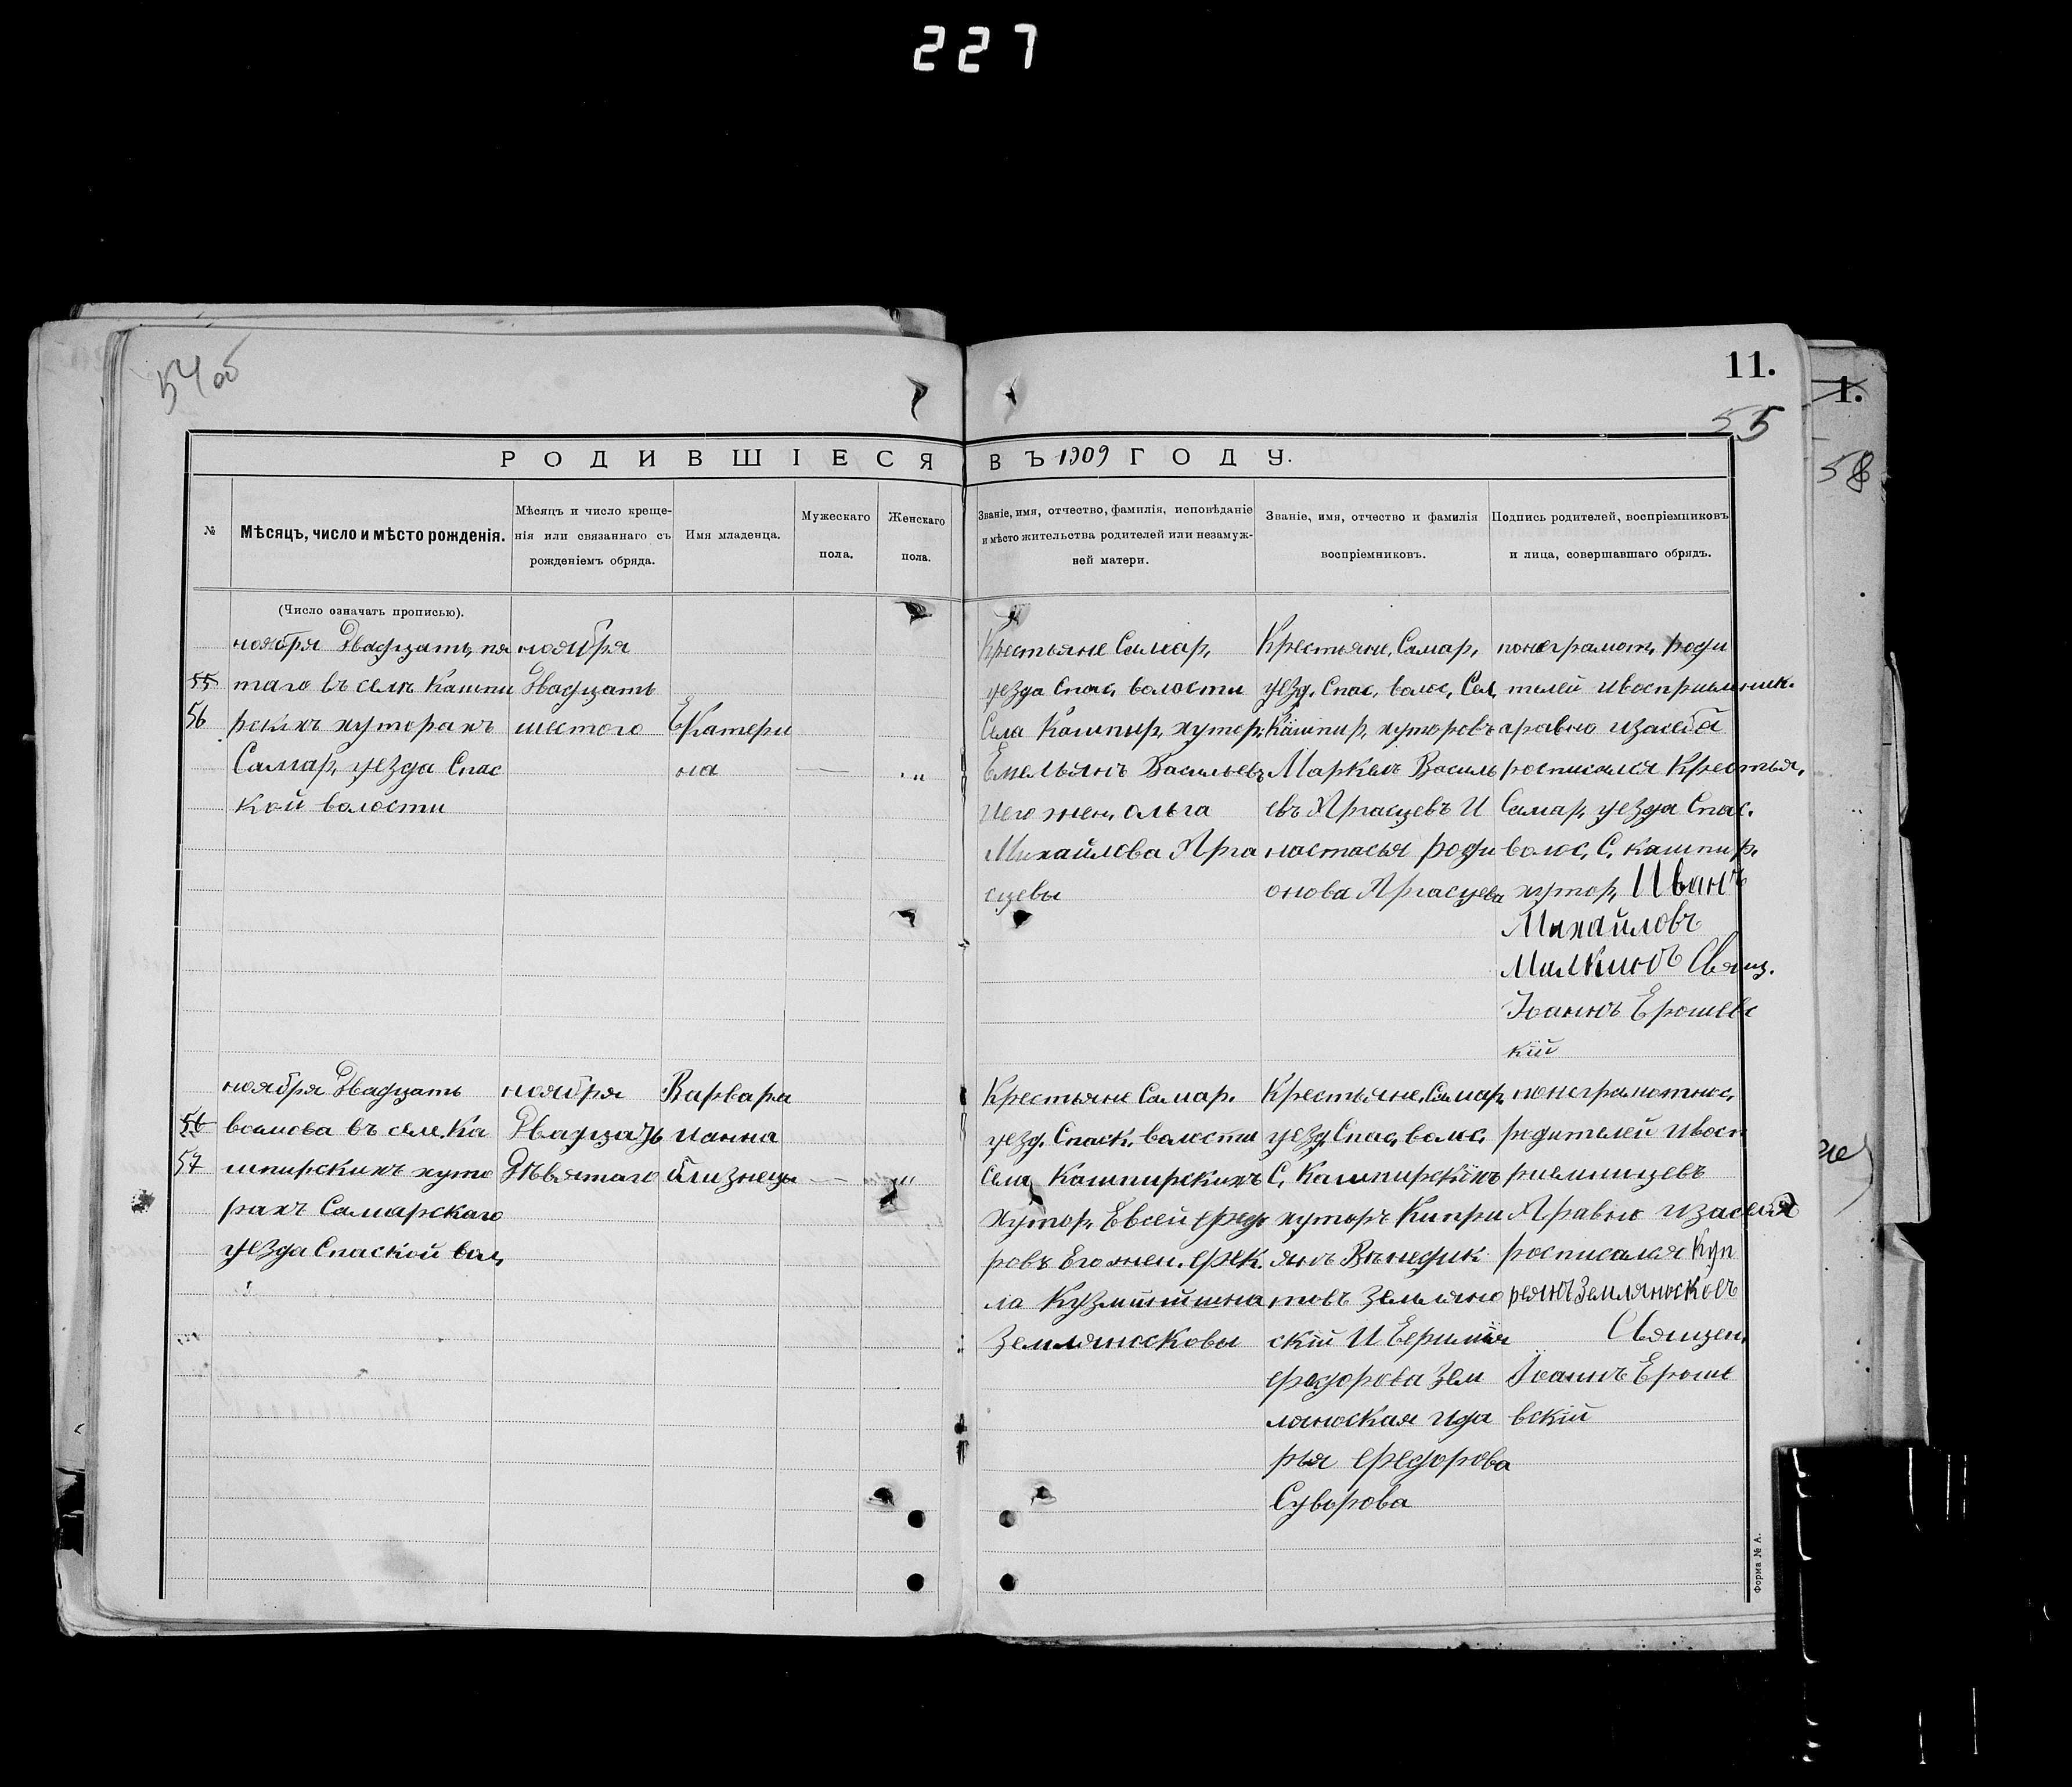 227
54 об
11.
1.
55
58
РОДИВШІЕСЯ ВЪ 1909 ГОДУ.
№
Мѣсяцъ, число и мѣсто рожденія.
Мѣсяцъ и число креще-
нія или связаннаго съ
рожденіемъ обряда.
Имя младенца.
Мужескаго
пола.
Женскаго
пола.
Званіе, имя, отчество, фамилія, исповѣданіе
и мѣсто жительства родителей или незамуж-
ней матери.
Званіе, имя, отчество и фамилія
воспріемниковъ.
Подпись родителей, воспріемниковъ
и лица, совершавшаго обрядъ.
(Число означать прописью).
55
56
ноября Двадцать пя
таго въ селѣ Кашпи
рскихъ хуторахъ
Самар, уезда Спас
кой волости
ноября
Двадцать
шестого
Екатери
на
— „
Крестьяне Самар,
уезда Спас, волости
Села Кашпир, хутор,
Емельянъ Васильевъ
Иего жен, ольга
Михайлова Арга
сцевы
Крестьяне, Самар,
уезд, Спас, волос, Сел,
Кашпир, хуторовъ
Маркелъ Василь
евъ Аргасцевъ И
настасья роди
онова Аргасцева
понеграмотн, роди
телей ивосприемник.
аравно изасебя
росписался Крестья,
Самар, уезда Спас.
волос, С, кашпир,
хутор, Иванъ
Михайловъ
Милкинъ Свящ.
Іоаннъ Ерошевс
кій
56
57
ноября Двадцать
восмова въ селе, Ка
шпирскихъ хуто
рахъ Самарскаго
уезда Спаской вол,
ноября
Двадцать
Дѣвятаго
Варвара
ианна
близнецы
— „
Крестьяне Самар.
уезд. Спаск, волости
Села Кашпирскихъ
хутор, Евсей Федо
ровъ Его жен. Фек
ла Кузминишна
Землянсковы
Крестьяне, Самар,
уезд, Спас, волос,
С, Кашпирскихъ
хуторъ Кипри
янъ Вѣнедик
товъ Земляно
скій И Еримия
Федорова Зем
лянская ида
рья Федорова
Суворова
понеграмотнос,
родителей ивосп
риемницевъ
Аравно изасебя
росписался Куп
реянъ Землянсковъ
Священ,
Іоаннъ Ероше
вскій
Форма № А.